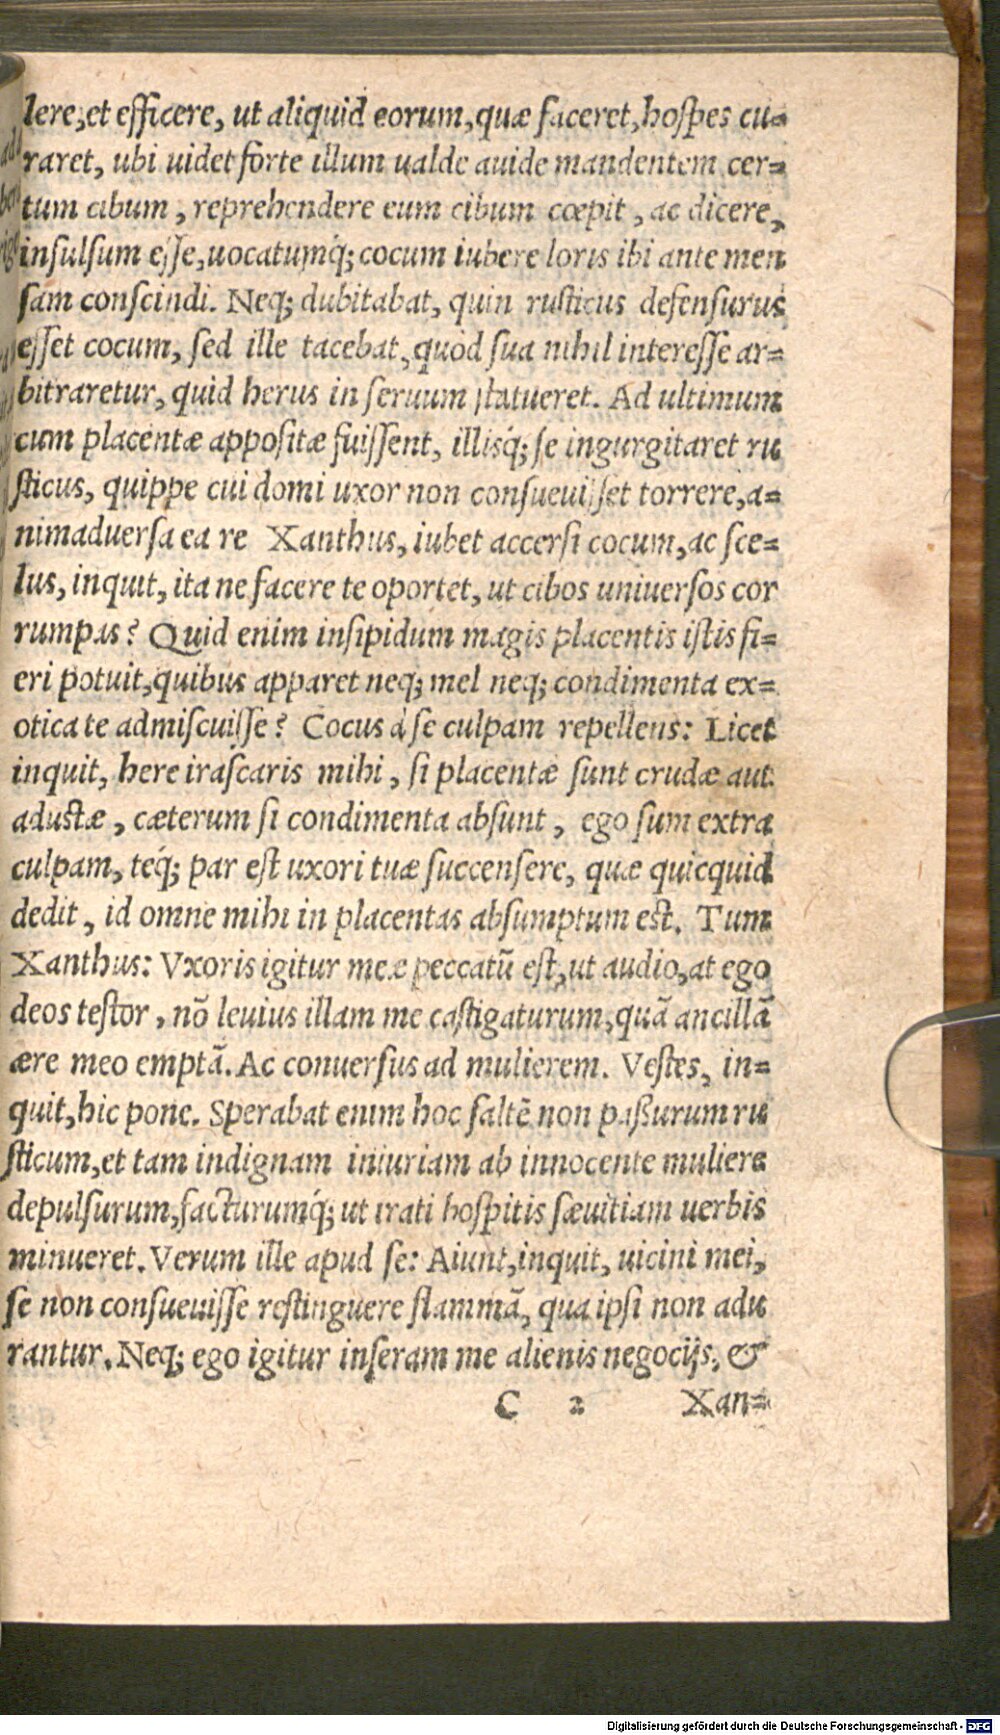 lere, et efficere, ut aliquid eorum, quæ faceret, hoſpes cu-
raret, ubi uidet forte illum ualde auide mandentem cer-
tum cibum, reprehendere eum cibum cœpit, ac dicere,
inſulſum eſſe, uocatumq́; cocum iubere loris ibi ante men
ſam conſcindi. Neq; dubitabat, quin ruſticus defenſurus
eſſet cocum, ſed ille tacebat, quòd ſua nihil intereſſe ar-
bitraretur, quid herus in ſeruum ſtatueret. Ad ultimum
cum placentæ appoſitæ fuiſſent, illisq́; ſe ingurgitaret ru
ſticus, quippe cui domi uxor non conſueuiſſet torrere, a-
nimaduerſa ea re Xanthus, iubet accerſi cocum, ac ſce-
lus, inquit, ita ne facere te oportet, ut cibos uniuerſos cor
rumpas? Quid enim inſipidum magis placentis iſtis fi-
eri potuit, quibus apparet neq; mel neq; condimenta ex-
otica te admiſcuiſſe? Cocus à ſe culpam repellens: Licet
inquit, here iraſcaris mihi, ſi placentæ ſunt crudæ aut
aduſtæ, cæterum ſi condimenta abſunt, ego ſum extra
culpam, téq; par eſt uxori tuæ ſuccenſere, quæ quicquid
dedit, id omne mihi in placentas abſumptum eſt. Tum
Xanthus: Vxoris igitur meæ peccatũ eſt, ut audio, at ego
deos teſtor, nõ leuius illam me caſtigaturum, quã ancillã
ære meo emptã. Ac conuerſus ad mulierem. Veſtes, in-
quit, hic pone. Sperabat enim hoc ſaltẽ non paßurum ru
ſticum, et tam indignam iniuriam ab innocente muliere
depulſurum, facturumq́; ut irati hoſpitis ſæuitiam uerbis
minueret. Verum ille apud ſe: Aiunt, inquit, uicini mei,
ſe non conſueuiſſe reſtinguere flammã, qua ipſi non adu
rantur. Neq; ego igitur inſeram me alienis negocijs, &
C 2 Xan-
Digitalisierung gefördert durch die Deutsche Forschungsgemeinschaft - DFG